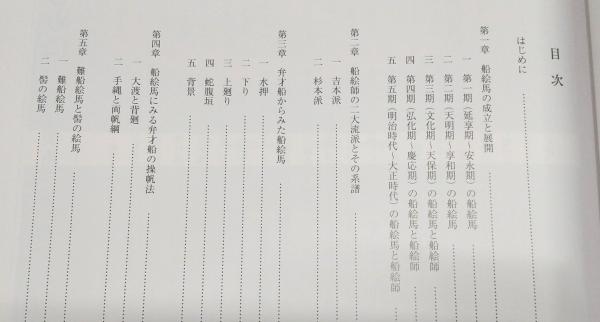 目次
はじめに
第一章 船絵馬の成立と展開
一 第一期（延享期～安永期）の船絵馬
二 第二期（天明期～享和期）の船絵馬
三 第三期（文化期～天保期）の船絵馬と船絵師
四 第四期（弘化期～慶応期）の船絵馬と船絵師
五 第五期（明治時代～大正時代）の船絵馬と船絵師
第二章 船絵師の二大流派とその系譜
一 吉本派
二 杉本派
第三章 弁才船からみた船絵馬
一 水押
二 下り
三 上廻り
四 蛇腹垣
五 背景
第四章 船絵馬にみる弁才船の操帆法
一 大渡と背廻
二 手縄と両帆綱
第五章 難船絵馬と髷の絵馬
一 難船絵馬
二 髷の絵馬